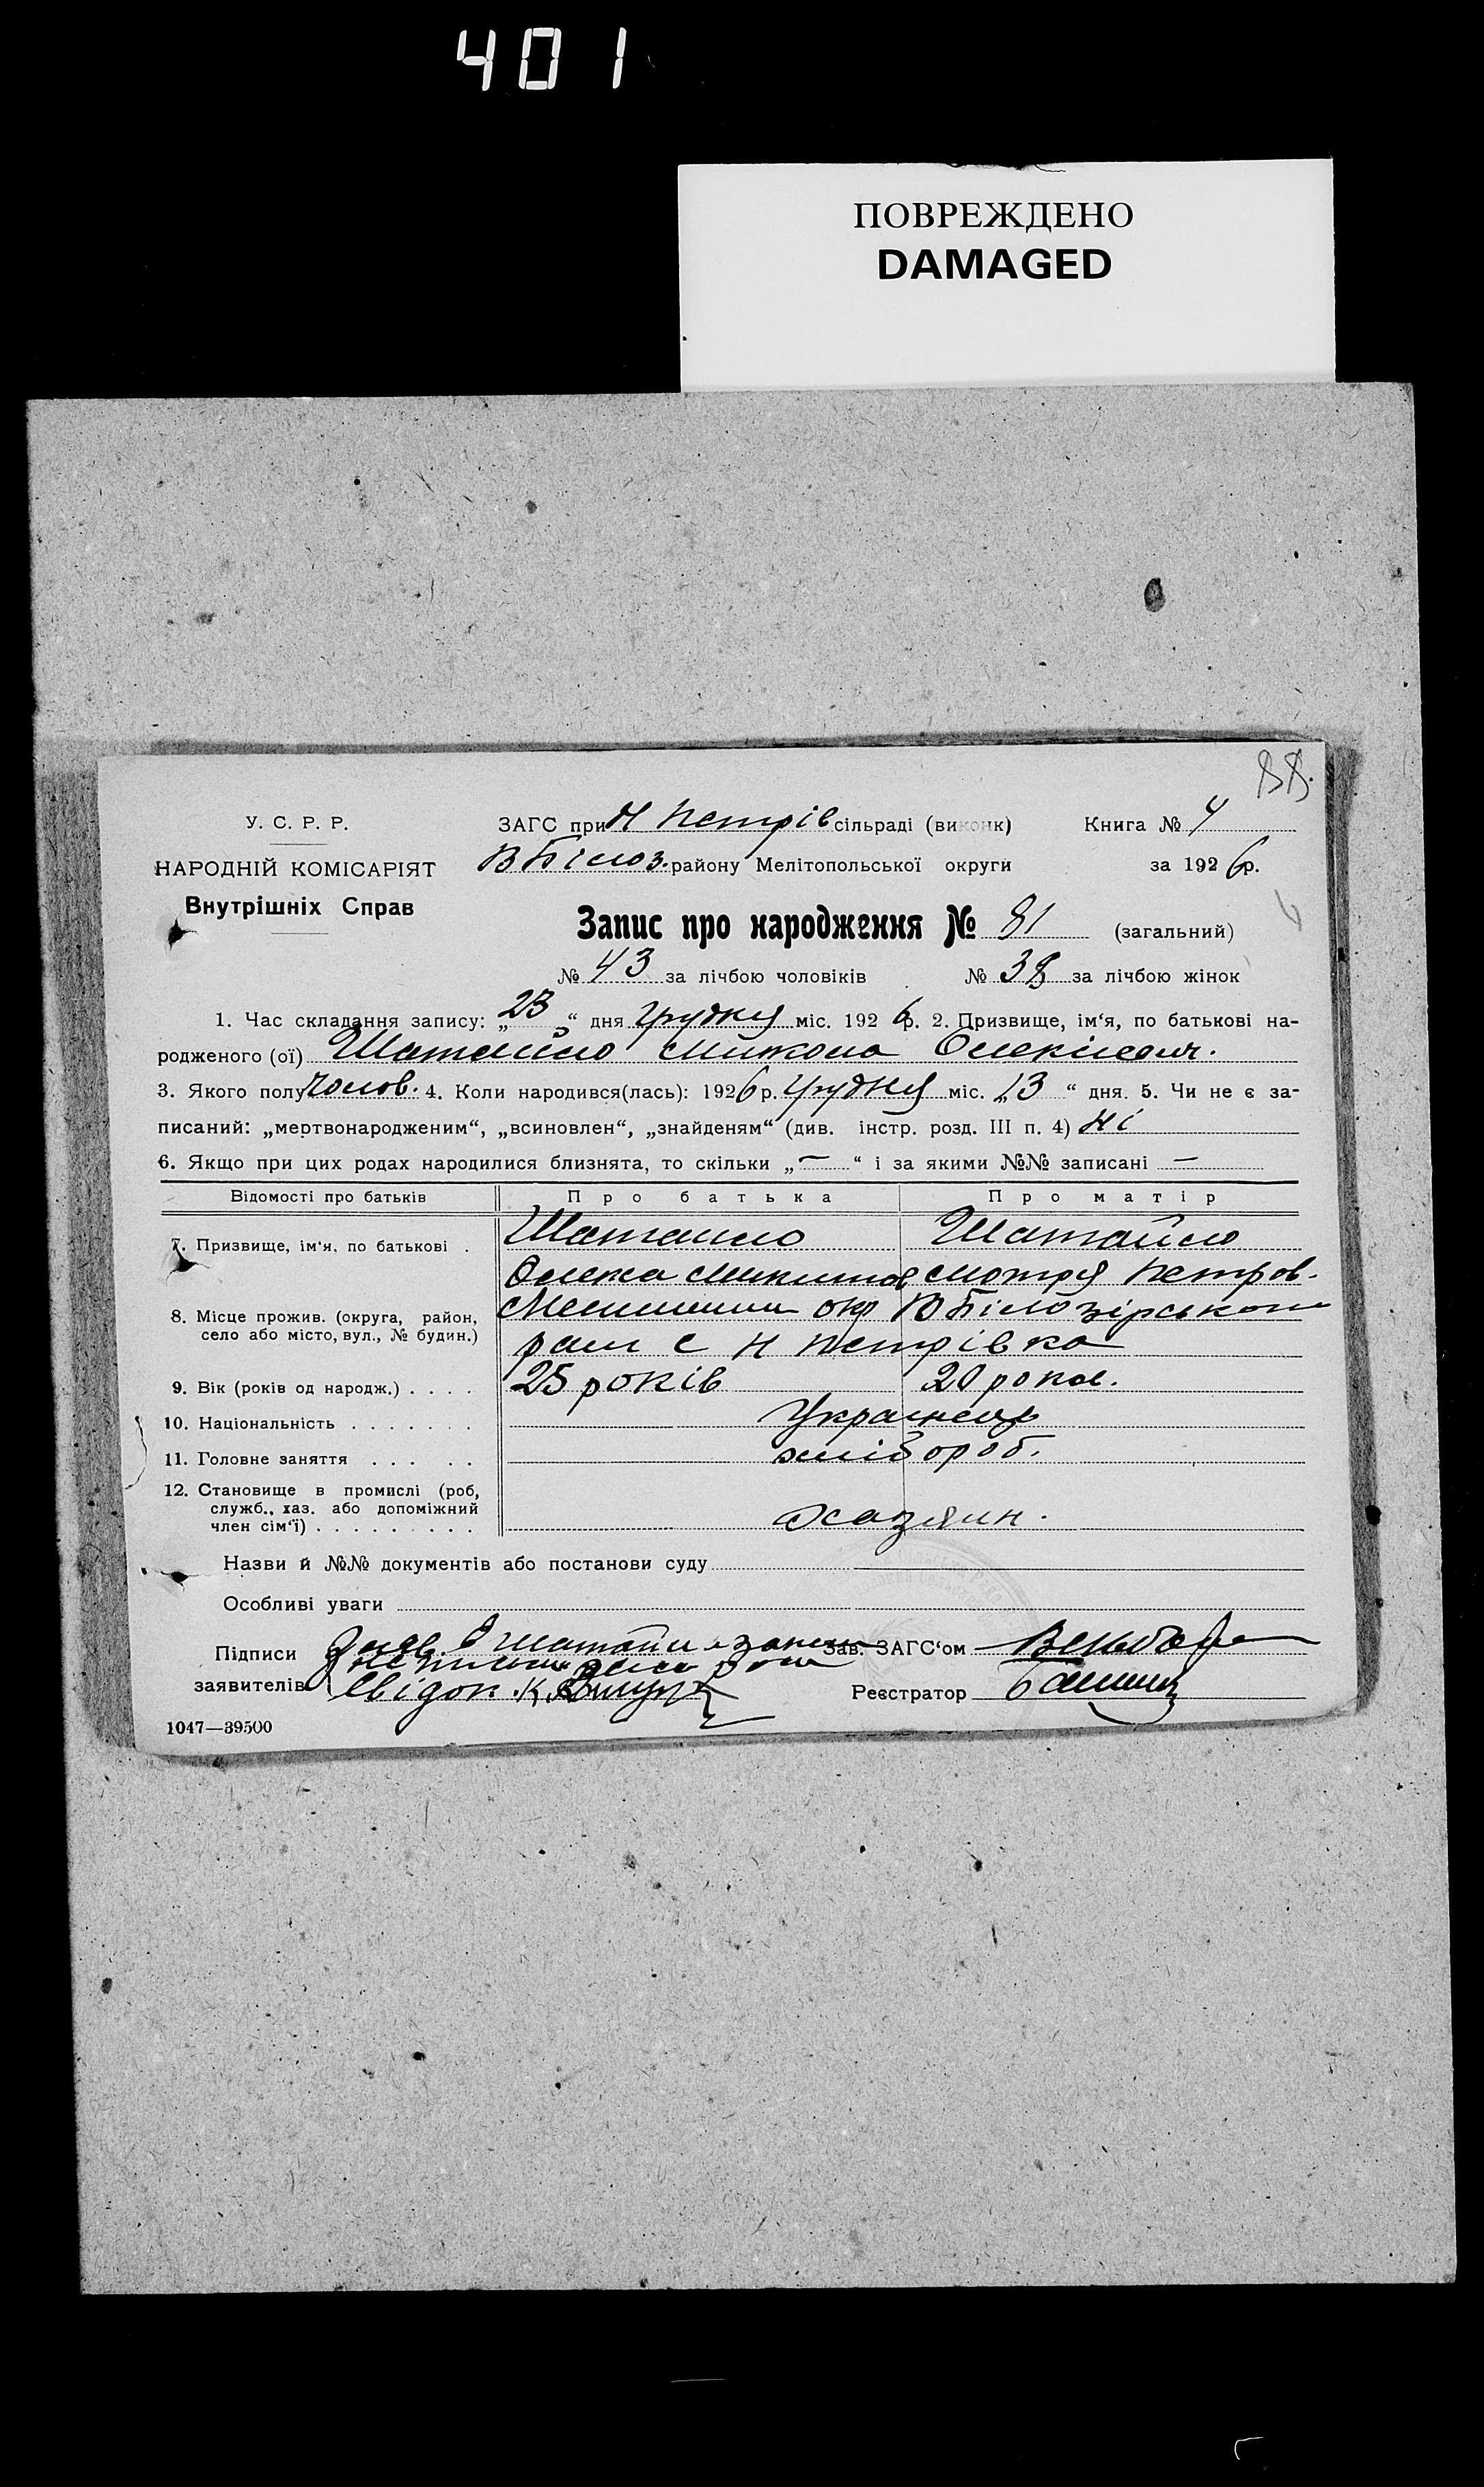 401
ПОВРЕЖДЕНО
DAMAGED
88.
У. С. Р. Р.
НАРОДНІЙ КОМІСАРІЯТ
Внутрішніх Справ
ЗАГС при Н Петрів сільраді (виконк) Книга № 4
В Білоз. району Мелітопольської округи за 1926 р.
Запис про народження № 81 (загальний)
№ 43 за лічбою чоловіків № 38 за лічбою жінок
1. Час складання запису: „23“ дня Грудня міс. 1926 р. 2. Призвище, ім‘я, по батькові на-
родженого (ої) Шатайло Микола
3. Якого полу Чолов. 4. Коли народився(лась): 1926 р. Грудня міс. „13“ дня. 5. Чи не є за-
писаний: „мертвонародженим“, „всиновлен“, „знайденям“ (див. інстр. розд. III п. 4) Ні
6. Якщо при цих родах народилися близнята, то скільки „—“ і за якими №№ записані —
Відомості про батьків Про батька Про матір
7. Призвище, ім‘я, по батькові . Шатайло Шатайло
Олекса Микитов Мотря Петров.
8. Місце прожив. (округа, район,
село або місто, вул., № будин.)
окр В Білозірського
рай с Н Петрівка
9. Вік (років од народж.) . . . . 25 років 20 років.
10. Національність . . . . . . . Українець
11. Головне заняття . . . . . хлібороб.
12. Становище в промислі (роб,
служб., хаз. або допоміжний
член сім‘ї) . . . . . . . . . Хазяин.
Назви й №№ документів або постанови суду
Особливі уваги
Підписи
заявителів
Свідок К.
Зав. ЗАГС‘ом
Реєстратор
1047—39500